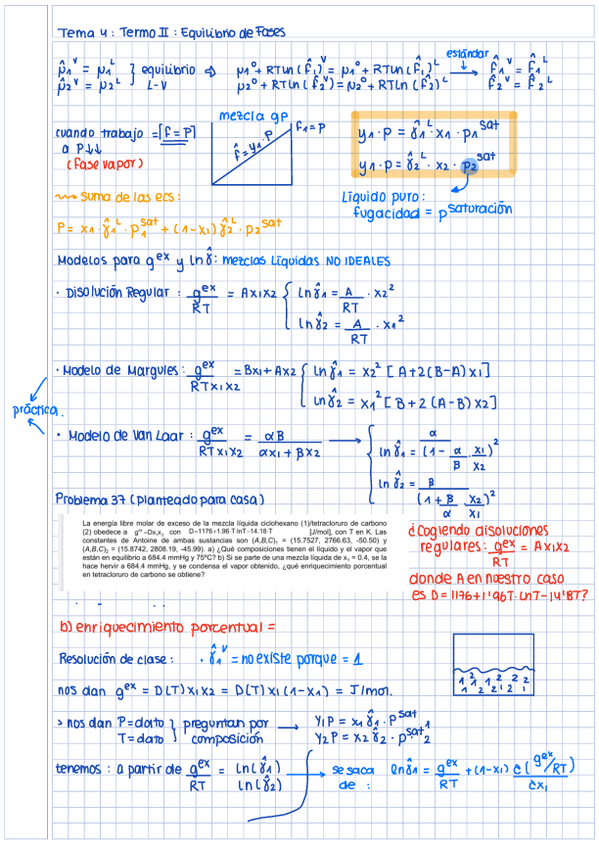 Tema 4 : Termo II : Equilibrio de Fases
μ̂1^V = μ1^L } equilibrio ⇒ μ1° + RTLn (f̂1)^V = μ1° + RTLn (f̂1)^L estándar → f̂1^V = f̂1^L
μ̂2^V = μ2^L } L-V μ2° + RTLn (f̂2^V) = μ2° + RTLn (f̂2)^L f̂2^V = f̂2^L
mezcla gP
cuando trabajo = [f = P]
a P↓↓
(fase vapor)
f̂ = y1 · P
f1 = P
y1 · P = γ̂1^L · x1 · p1^sat
y1 · P = γ̂2^L · x2 · p2^sat
Líquido puro:
fugacidad = p^saturación
⇝ suma de las ecs:
P = x1 · γ̂1^L · p1^sat + (1-x1) γ̂2^L · p2^sat
Modelos para g^ex y ln γ̂ : mezclas líquidas NO IDEALES
· Disolución Regular : g^ex/RT = Ax1x2 { ln γ̂1 = A/RT · x2²
ln γ̂2 = A/RT · x1²
· Modelo de Margules : g^ex/RTx1x2 = Bx1 + Ax2 { ln γ̂1 = x2² [A + 2(B-A) x1]
ln γ̂2 = x1² [B + 2 (A-B) x2]
práctica.
· Modelo de Van Laar : g^ex/RTx1x2 = αB/αx1 + βx2 → { ln γ̂1 = α/(1 - α/β x1/x2)²
ln γ̂2 = β/(1 + β/α x2/x1)²
Problema 37 (planteado para casa)
La energía libre molar de exceso de la mezcla líquida ciclohexano (1)/tetracloruro de carbono
(2) obedece a gᵉˣ=Dx₁x₂ con D=1176+1.96·T·lnT–14.18·T [J/mol], con T en K. Las
constantes de Antoine de ambas sustancias son (A,B,C)₁ = (15.7527, 2766.63, -50.50) y
(A,B,C)₂ = (15.8742, 2808.19, -45.99). a) ¿Qué composiciones tienen el líquido y el vapor que
están en equilibrio a 684.4 mmHg y 75ºC? b) Si se parte de una mezcla líquida de x₁ = 0.4, se la
hace hervir a 684.4 mmHg, y se condensa el vapor obtenido, ¿qué enriquecimiento porcentual
en tetracloruro de carbono se obtiene?
¿Cogiendo disoluciones
regulares : g^ex/RT = Ax1x2
donde A en nuestro caso
es D = 1176+1'96T·LnT-14'18T?
b) enriquecimiento porcentual =
Resolución de clase : · γ̂1^V = no existe porque = 1
nos dan g^ex = D(T) x1x2 = D(T) x1 (1-x1) = J/mol.
> nos dan P = dato } preguntan por → y1P = x1 γ̂1 · p^sat 1
T = dato } composición y2P = x2 γ̂2 · p^sat 2
tenemos : a partir de g^ex/RT = ln(γ̂1)/ln(γ̂2) → se saca de : ln γ̂1 = g^ex/RT + (1-x1) ∂(g^ex/RT)/∂x1